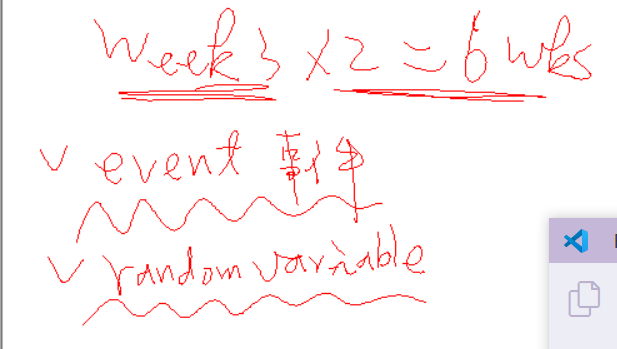 Week 3 x 2 = 6 wks
✓ event 事件
✓ random variable